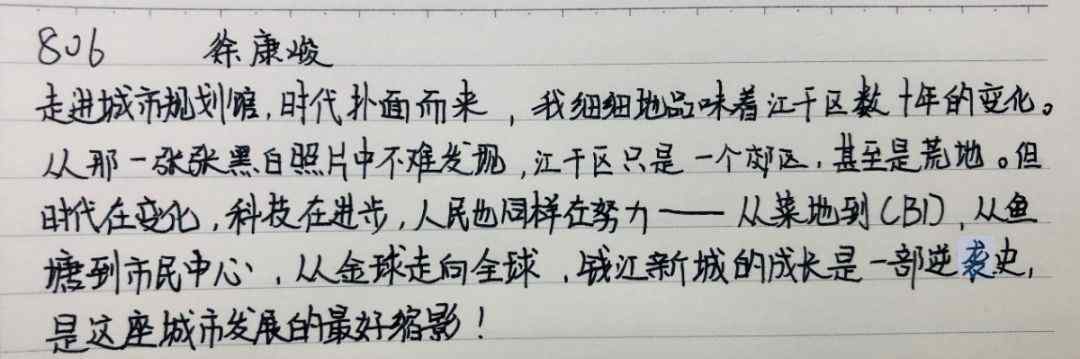 806 徐康峻
走进城市规划馆,时代扑面而来,我细细地品味着江干区数十年的变化。
从那一张张黑白照片中不难发现,江干区只是一个郊区,甚至是荒地。但
时代在变化,科技在进步,人民也同样在努力——从菜地到CBD,从鱼
塘到市民中心,从金球走向全球,钱江新城的成长是一部逆袭史,
是这座城市发展的最好缩影!